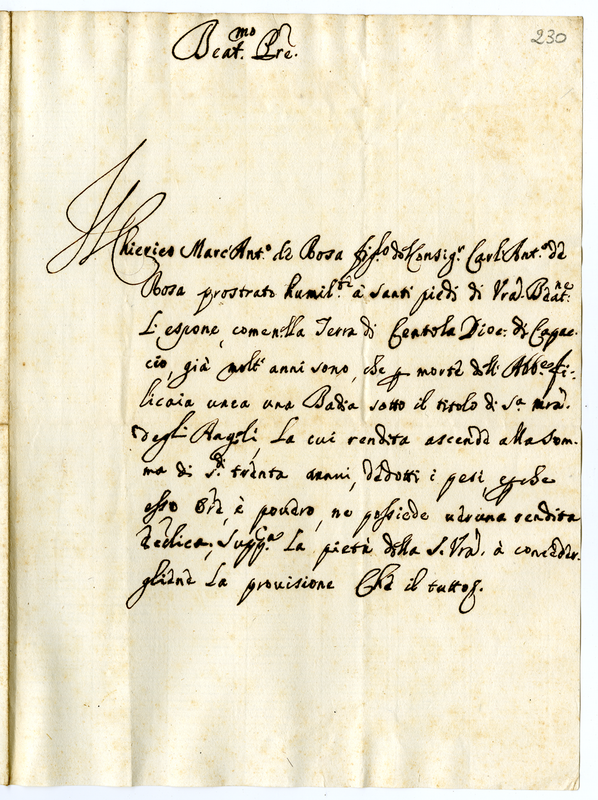 230
Beat.mo Pre.
Il Chierico Marc'Ant.o de Rosa figlio del Consig.r Carl'Ant.o de
Rosa prostrato humil.te à santi piedi di Vra. Beat.ne
L'espone, come nella Terra di Centola Dioc. di Capac-
cio, già molti anni sono, che p morte dell'Abbe. Fi-
licaia vaca una Badia sotto il titolo di S.a Mra.
degl'Angeli, La cui rendita ascende alla som-
ma di s.di trenta annui, dedotti i pesi, e perche
esso Ore, è povero, ne possiede veruna rendita
Ecclica, supp.ca La pietà della S. Vra. à conceder-
gliene La provisione Che il tutto